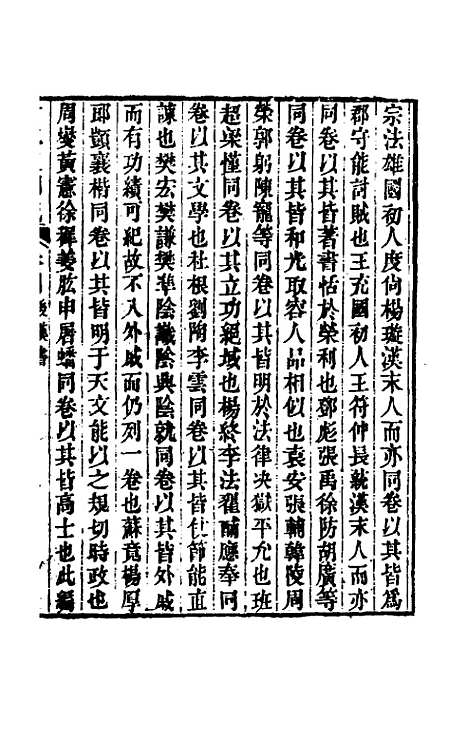 宗法雄國初人度尚楊璇漢末人而亦同卷以其皆爲
郡守能討賊也王充國初人王符仲長統漢末人而亦
同卷以其皆著書恬於榮利也鄧彪張禹徐防胡廣等
同卷以其皆和光取容人品相似也袁安張輔韓陵周
榮郭躬陳寵等同卷以其皆明於法律决獄平允也班
超梁慬同卷以其立功絕域也楊終李法翟酺應奉同
卷以其文學也杜根劉陶李雲同卷以其皆仗節能直
諫也樊宏樊謙樊準陰識陰興陰就同卷以其皆外戚
而有功績可紀故不入外戚而仍列一卷也蘇竟楊厚
郎顗襄楷同卷以其皆明于天文能以之規切時政也
周燮黃憲徐穉姜肱申屠蟠同卷以其皆高士也此編
後漢書